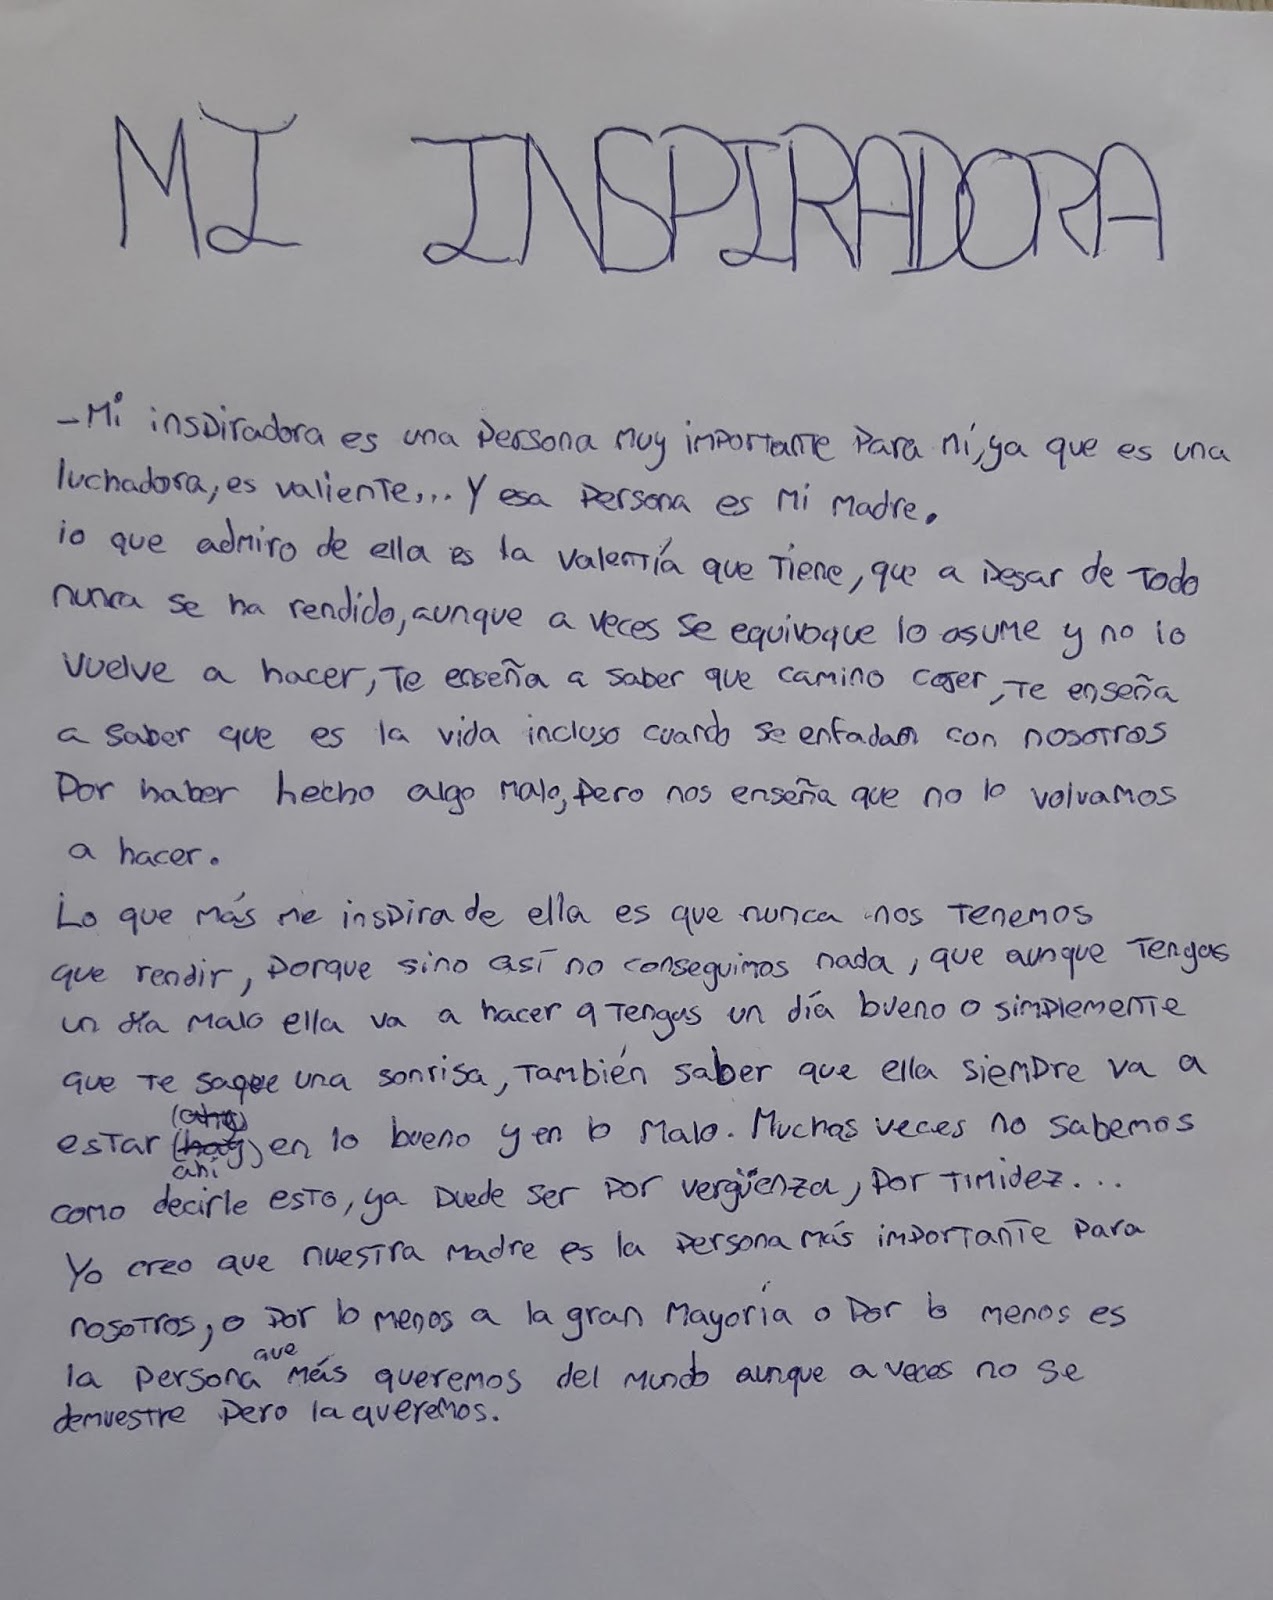 MI INSPIRADORA
-Mi inspiradora es una persona muy importante para mí, ya que es una
luchadora, es valiente... Y esa persona es mi madre.
lo que admiro de ella es la valentía que tiene, que a pesar de todo
nunca se ha rendido, aunque a veces se equivoque lo asume y no lo
vuelve a hacer, te enseña a saber que camino coger, te enseña
a saber que es la vida incluso cuando se enfadan con nosotros
por haber hecho algo malo, pero nos enseña que no lo volvamos
a hacer.
Lo que más me inspira de ella es que nunca nos tenemos
que rendir, porque sino así no conseguimos nada, que aunque tengas
un día malo ella va a hacer q tengas un día bueno o simplemente
que te saque una sonrisa, también saber que ella siempre va a
estar ahí en lo bueno y en lo malo. Muchas veces no sabemos
como decirle esto, ya puede ser por vergüenza, por timidez...
Yo creo que nuestra madre es la persona más importante para
nosotros, o por lo menos a la gran mayoría o por lo menos es
la persona que más queremos del mundo aunque a veces no se
demuestre pero la queremos.